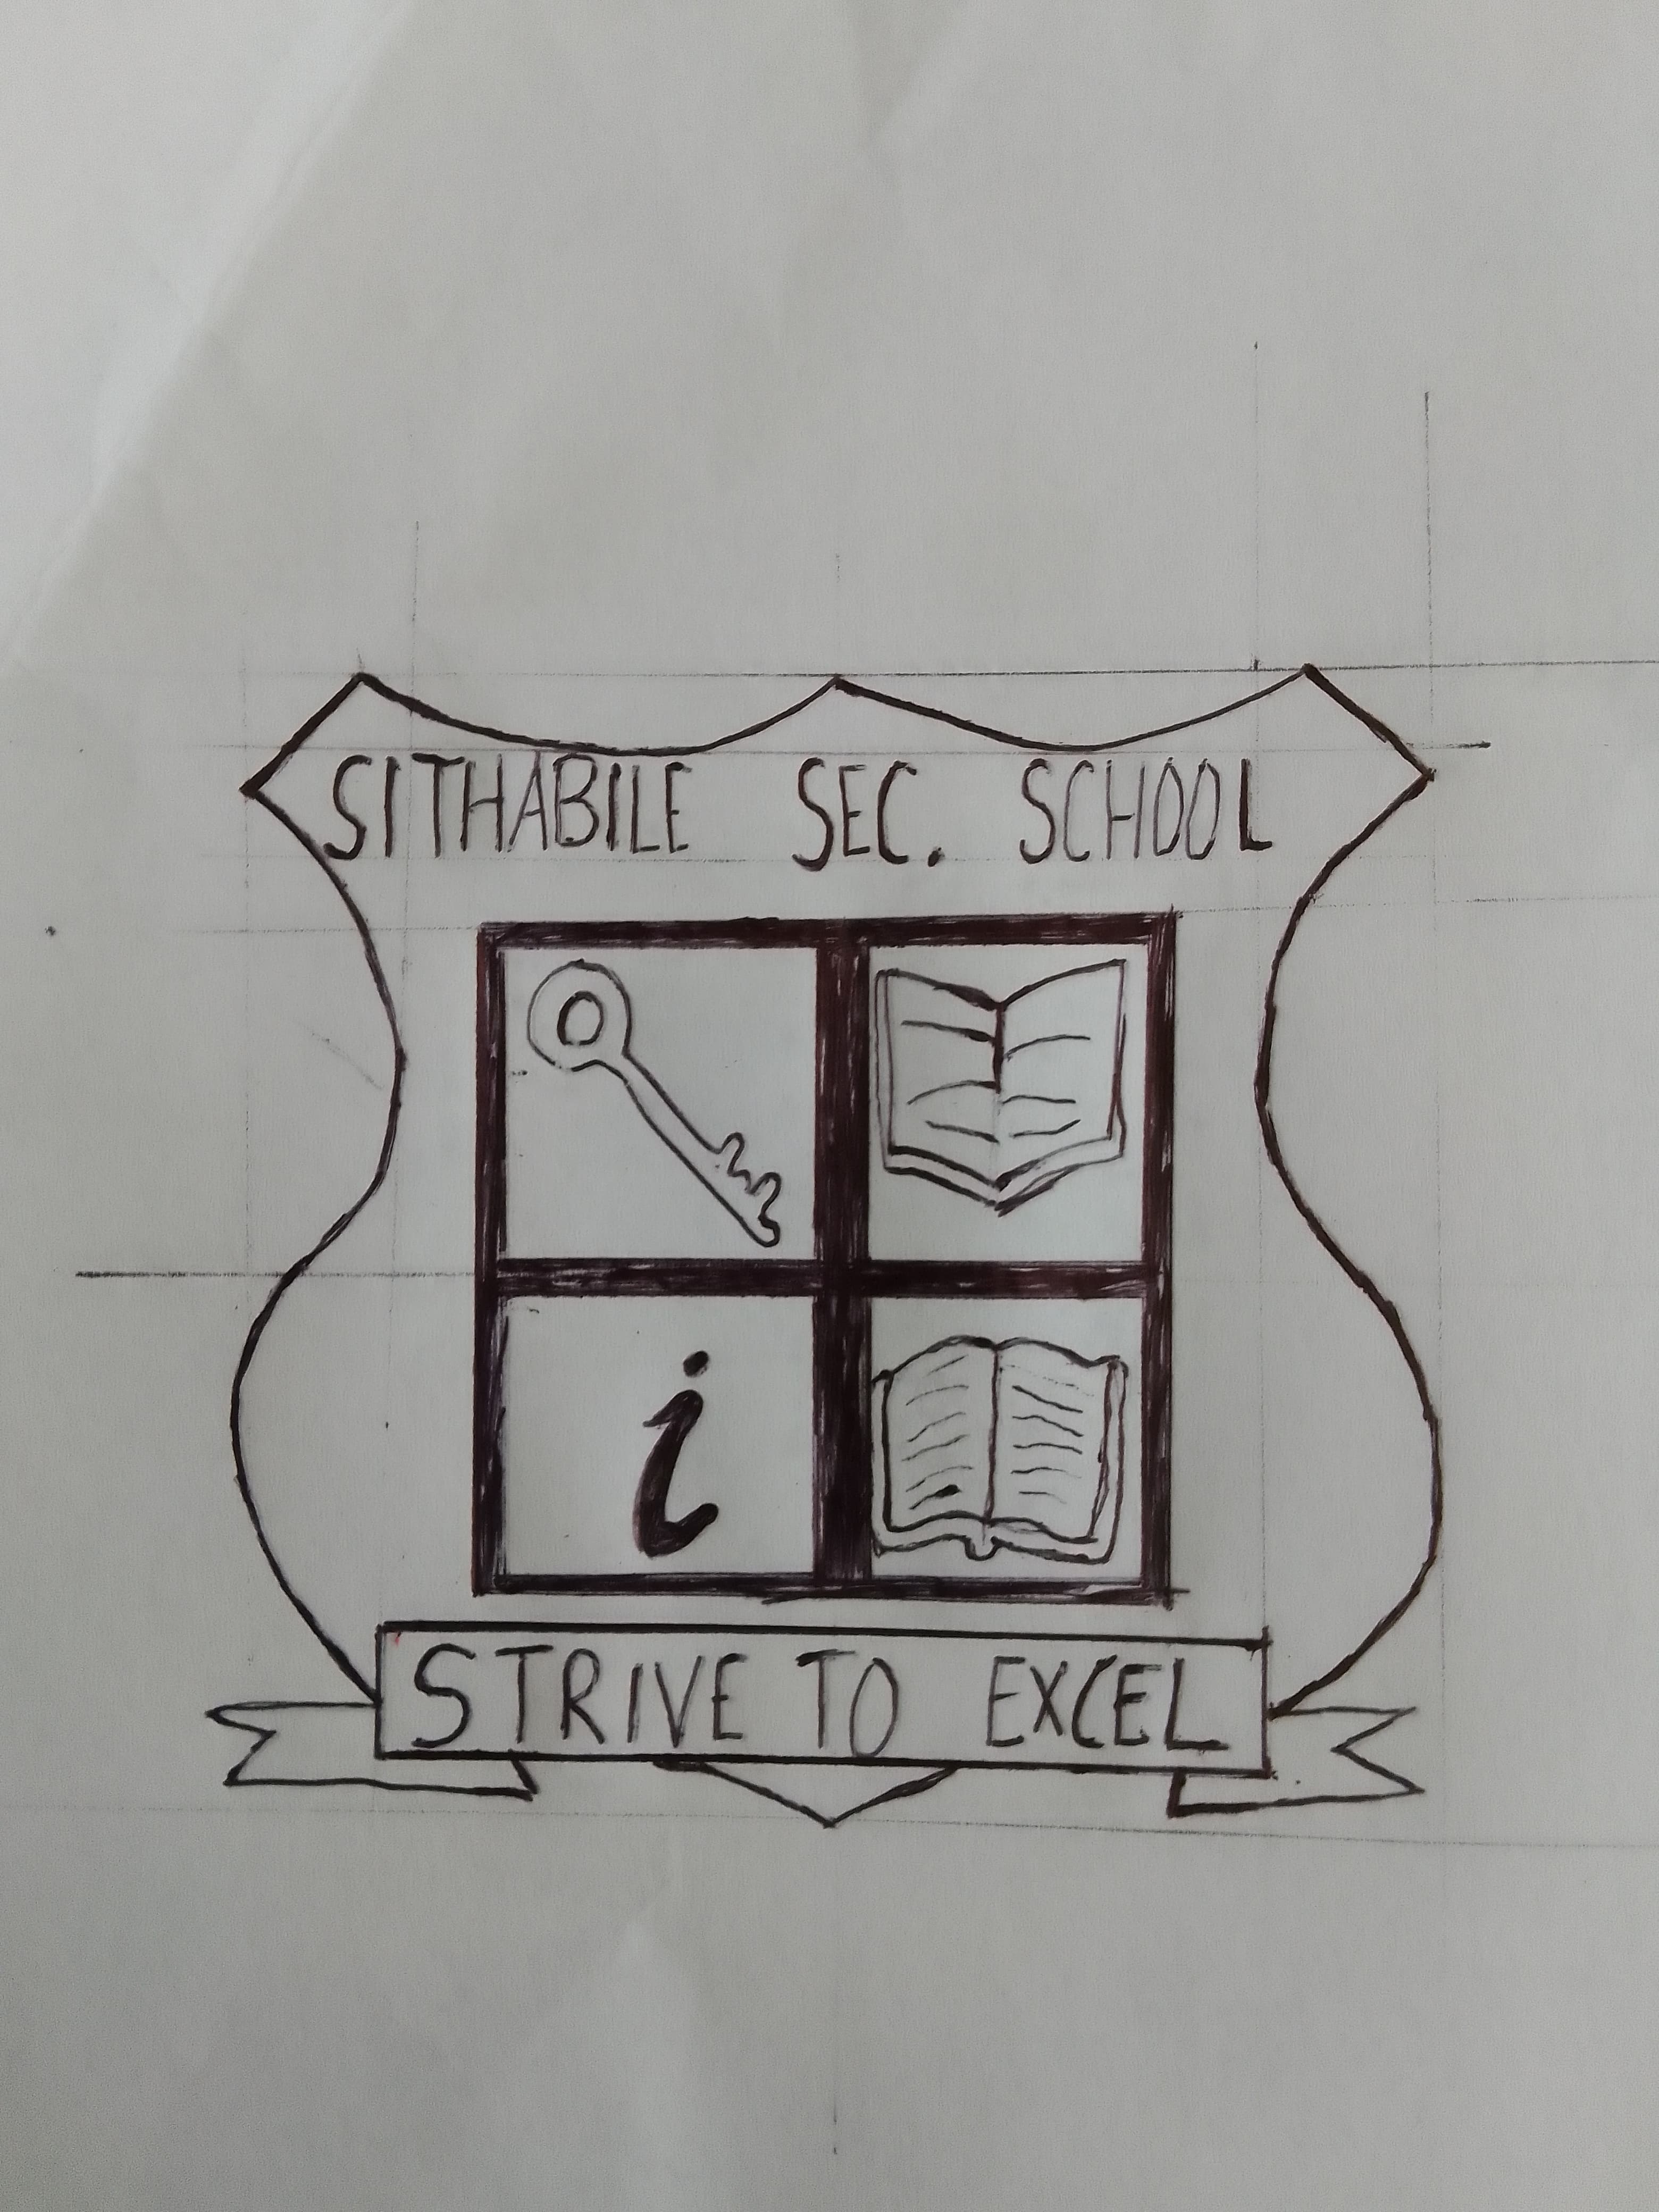 SITHABILE SEC. SCHOOL
i
STRIVE TO EXCEL